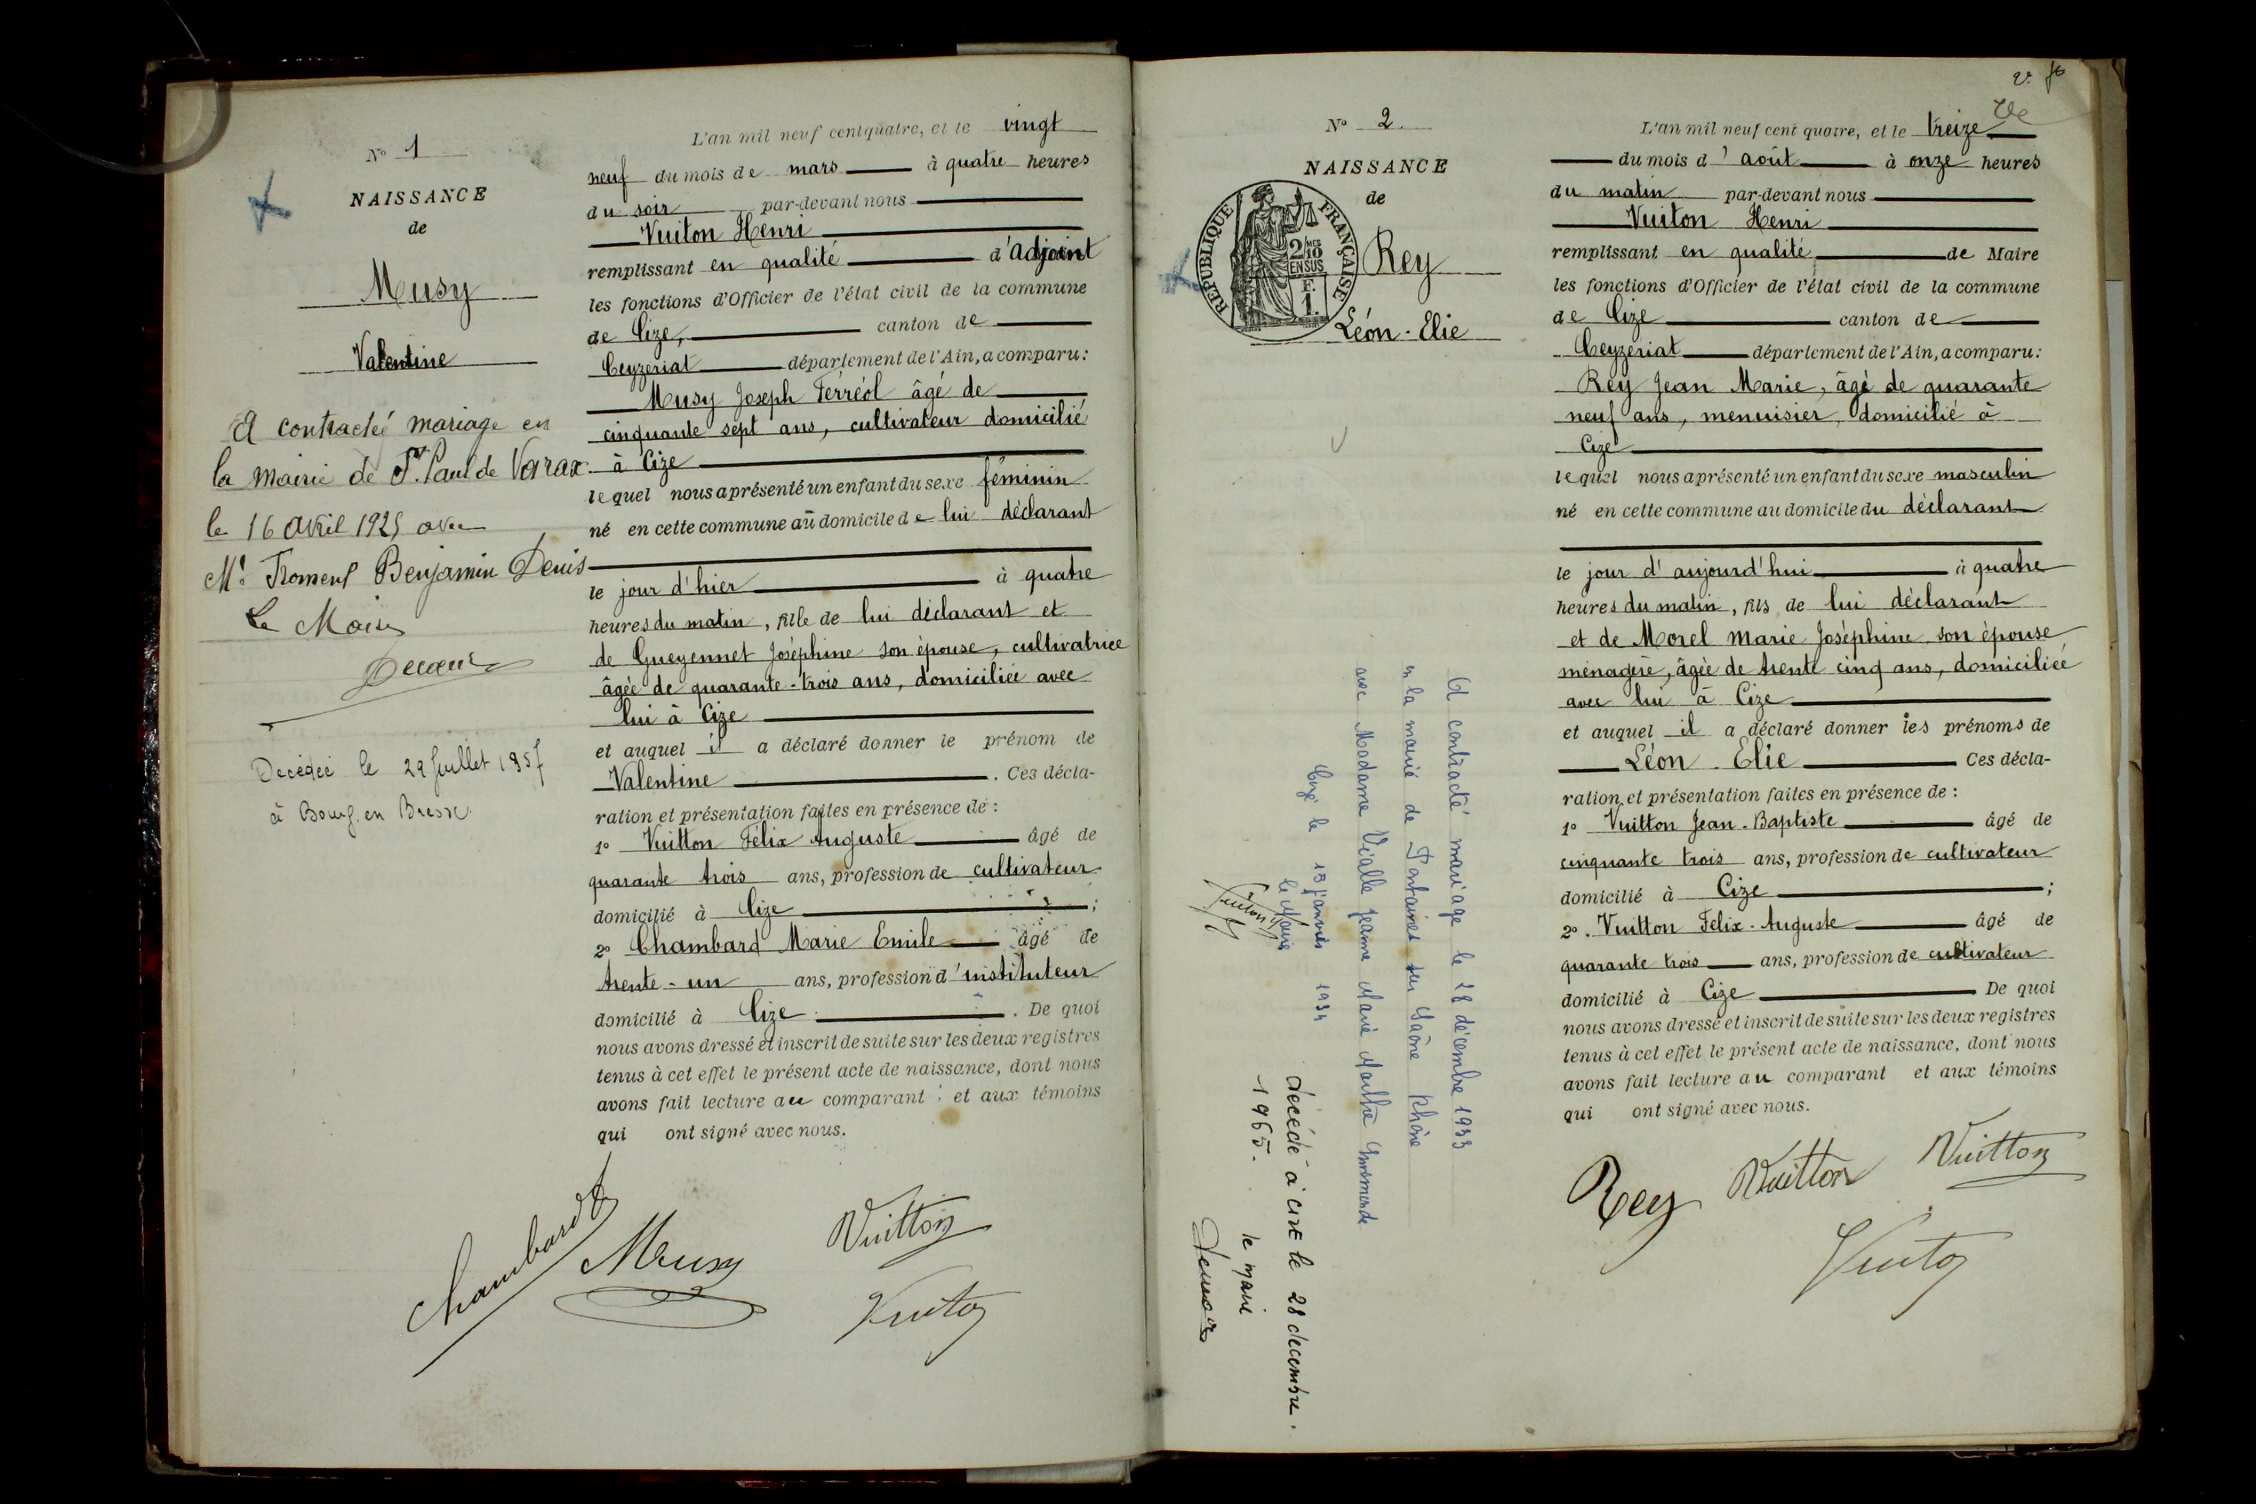 N° 1
NAISSANCE
de
Musy
Valentine
A contractée mariage en
la mairie de St. Paul de Varax
le 16 avril 1925 avec
Mr. Froment Benjamin Denis
Le Maire
Décédée le 29 Juillet 1957
à Bourg. en Bresse.
L'an mil neuf cent quatre, et le vingt
neuf du mois de mars à quatre heures
du soir par-devant nous
Vuiton Henri
remplissant en qualité d'Adjoint
les fonctions d'Officier de l'état civil de la commune
de Cize, canton de
Ceyzeriat département de l'Ain, a comparu:
Musy Joseph Ferréol âgé de
cinquante sept ans, cultivateur domicilié
à Cize
lequel nous a présenté un enfant du sexe féminin
né en cette commune au domicile de lui déclarant
le jour d'hier à quatre
heures du matin, fille de lui déclarant et
de Gueyennet Joséphine son épouse, cultivatrice
âgée de quarante-trois ans, domiciliée avec
lui à Cize
et auquel il a déclaré donner le prénom de
Valentine. Ces décla-
ration et présentation faites en présence de:
1° Vuitton Félix Auguste âgé de
quarante trois ans, profession de cultivateur
domicilié à Cize;
2° Chambard Marie Emile âgé de
trente-un ans, profession d'instituteur
domicilié à Cize. De quoi
nous avons dressé et inscrit de suite sur les deux registres
tenus à cet effet le présent acte de naissance, dont nous
avons fait lecture au comparant et aux témoins
qui ont signé avec nous.
Chambard
Musy
Vuitton
Vuiton
N° 2.
NAISSANCE
de
RÉPUBLIQUE FRANÇAISE
2/10 MES
EN SUS
F.
1.
Rey
Léon-Elie
A contracté mariage le 28 décembre 1933
en la mairie de Fontaines sur Saône Rhône
avec Madame Vialle Jeanne Marie Marthe
Cize le 13 janvier 1934
le Maire
Vuiton
décédé à CIZE le 28 décembre.
1965.
le maire
L'an mil neuf cent quatre, et le treize
du mois d'août à onze heures
du matin par-devant nous
Vuiton Henri
remplissant en qualité de Maire
les fonctions d'Officier de l'état civil de la commune
de Cize canton de
Ceyzeriat département de l'Ain, a comparu:
Rey Jean Marie, âgé de quarante
neuf ans, menuisier, domicilié à
Cize
lequel nous a présenté un enfant du sexe masculin
né en cette commune au domicile du déclarant
le jour d'aujourd'hui à quatre
heures du matin, fils de lui déclarant
et de Morel Marie Joséphine son épouse
ménagère, âgée de trente cinq ans, domiciliée
avec lui à Cize
et auquel il a déclaré donner les prénoms de
Léon Elie Ces décla-
ration et présentation faites en présence de:
1° Vuitton Jean-Baptiste âgé de
cinquante trois ans, profession de cultivateur
domicilié à Cize;
2°. Vuitton Félix-Auguste âgé de
quarante trois ans, profession de cultivateur
domicilié à Cize De quoi
nous avons dressé et inscrit de suite sur les deux registres
tenus à cet effet le présent acte de naissance, dont nous
avons fait lecture au comparant et aux témoins
qui ont signé avec nous.
Rey
Vuitton
Vuitton
Vuiton